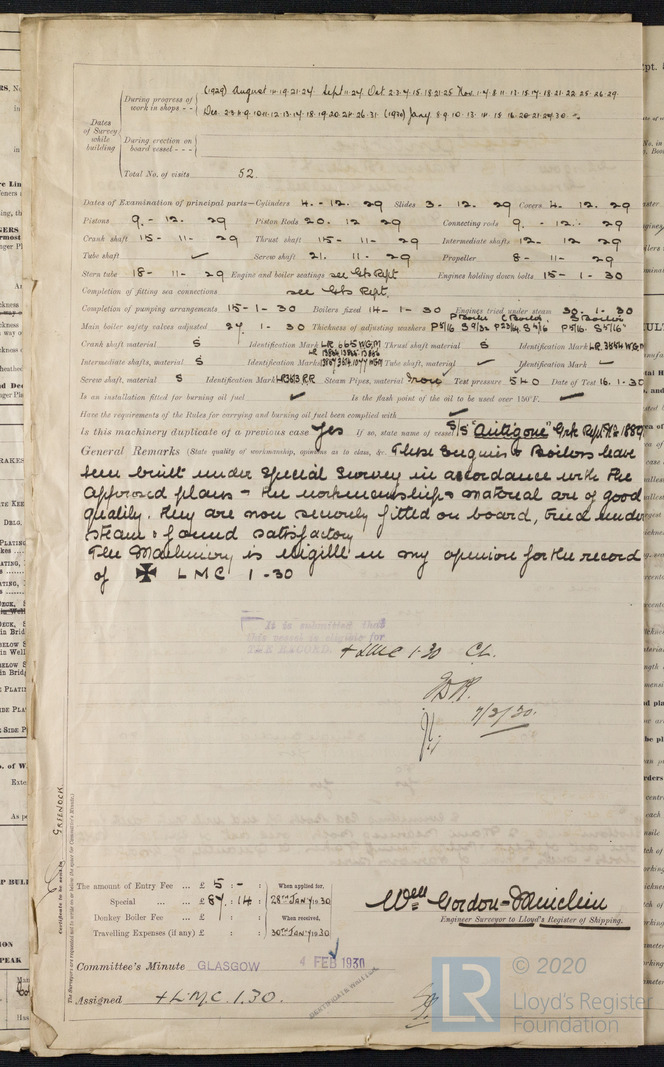 (1929) August 14.19.21.24. Sept 11.24. Oct. 2.3.4.15.18.21.25 Nov. 1.4.8.11.13.15.17.18.21.22.25.26.29.
Dates of Survey while building
During progress of work in shops - -
Dec. 2.3.6.9.10.11.12.13.14.18.19.20.24.26.31. (1930) Jany. 8.9.10.13.14.15.16.20.21.24.30.
During erection on board vessel - - -
Total No. of visits 52.
Dates of Examination of principal parts—Cylinders 4. - 12. 29 Slides 3. - 12. 29 Covers 4. 12. 29
Pistons 9. - 12. 29 Piston Rods 20. 12 29 Connecting rods 9. - 12. - 29
Crank shaft 15 - 11 - 29 Thrust shaft 15 - 11 - 29 Intermediate shafts 12 - 12 29
Tube shaft ✓ Screw shaft 21. 11 - 29 Propeller 8 - 11 - 29
Stern tube 18 - 11 - 29 Engine and boiler seatings see Gbs Rept. Engines holding down bolts 15 - 1 - 30
Completion of fitting sea connections see Gbs Rept.
Completion of pumping arrangements 15 - 1 - 30 Boilers fixed 14 - 1 - 30 Engines tried under steam 30. 1. 30
Main boiler safety valves adjusted 24. 1 - 30 Thickness of adjusting washers
Crank shaft material S Identification Mark LR 665 WGM Thrust shaft material S Identification Mark LR. 3854 WGM
Intermediate shafts, material S Identification Marks Tube shaft, material ✓ Identification Mark ✓
Screw shaft, material S Identification Mark LR 3613 R.R Steam Pipes, material Iron Test pressure 540 Date of Test 16. 1. 30
Is an installation fitted for burning oil fuel ✓ Is the flash point of the oil to be used over 150°F. ✓
Have the requirements of the Rules for carrying and burning oil fuel been complied with ✓
Is this machinery duplicate of a previous case Yes If so, state name of vessel S/S "Antigone" Grk Rept No 1889
General Remarks (State quality of workmanship, opinions as to class, &c. These Engines & Boilers have
been built under Special Survey in accordance with the
approved plans - the workmanship & material are of good
quality. they are now securely fitted on board, tried under
steam & found satisfactory
The Machinery is eligible in my opinion for the record
of ✠ LMC 1 - 30
It is submitted that
this vessel is eligible for
THE RECORD. + LMC 1.30 CL.
7/2/30.
GREENOCK
Certificate to be sent to
The Surveyors are requested not to write on or below the space for Committee's Minute.
The amount of Entry Fee ... £ 5 : - : When applied for,
Special ... ... £ 84 : 14 : 28TH JANY 1930
Donkey Boiler Fee ... £ : : When received,
Travelling Expenses (if any) £ : : 30TH JANY 1930
Wm Gordon-
Engineer Surveyor to Lloyd's Register of Shipping.
Committee's Minute GLASGOW 4 FEB 1930
Assigned + L.M.C. 1.30.
CERTIFICATE WRITTEN
LR © 2020
Lloyd's Register
Foundation